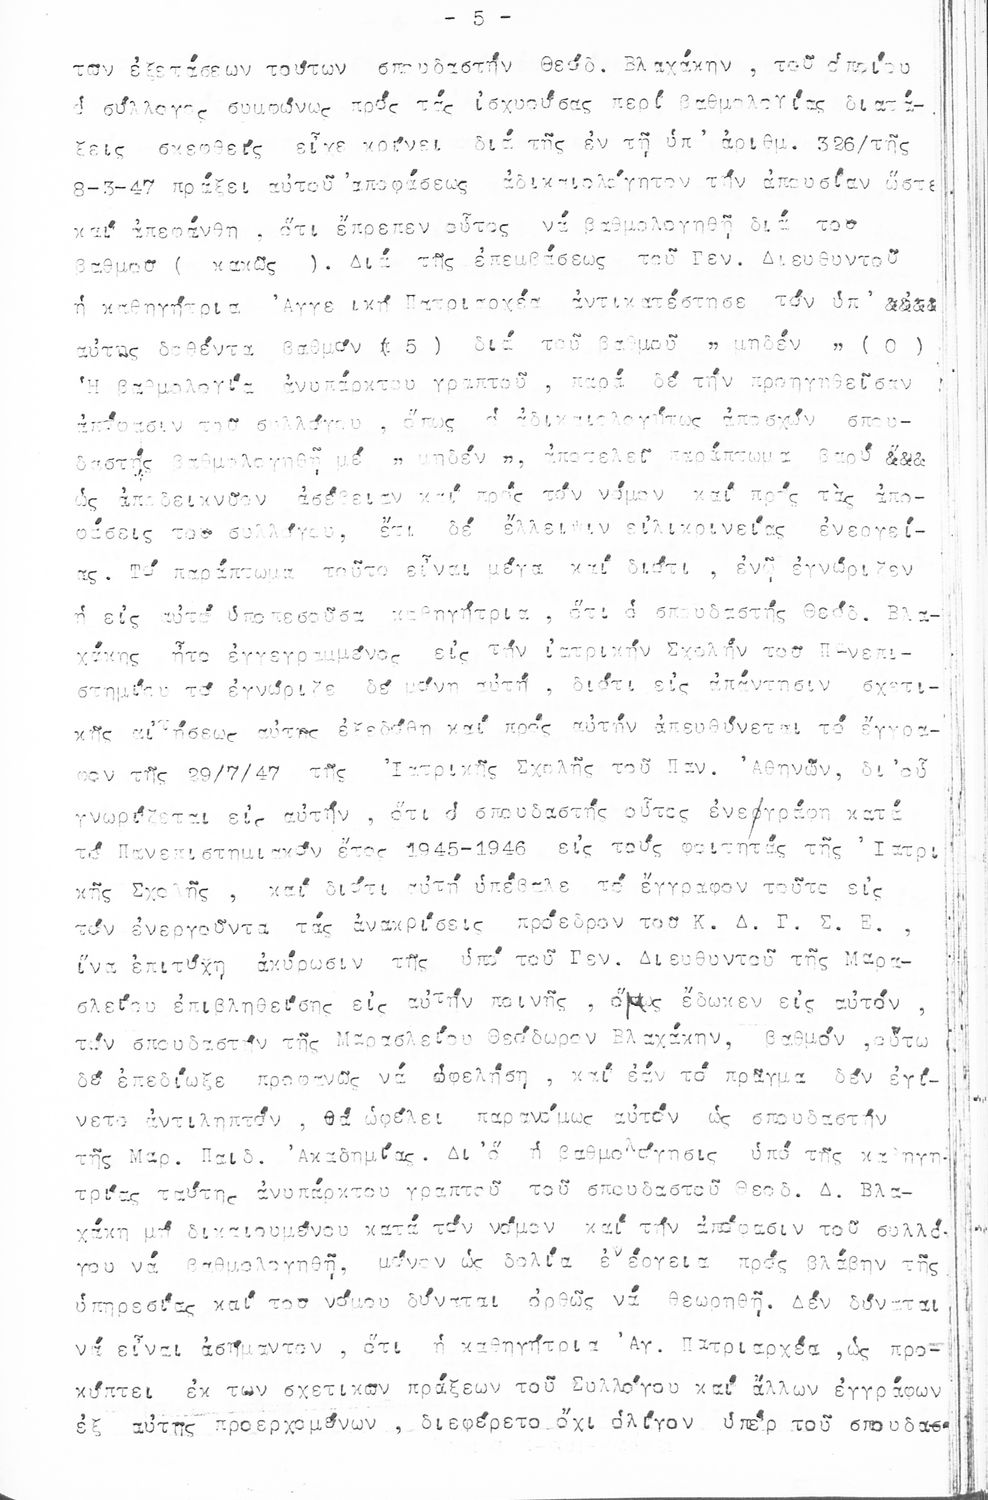 - 5 -
των ἐξετάσεων τούτων σπουδαστήν Θεόδ. Βλαχάκην , τοῦ ὁποίου
ὁ σύλλογος συμφώνως πρός τάς ἰσχυούσας περί βαθμολογίας διατά-
ξεις σκεφθείς εἶχε κρίνει διά τῆς ἐν τῇ ὑπ' ἀριθμ. 326/τῆς
8-3-47 πράξει αὐτοῦ 'αποφάσεως ἀδικαιολόγητον τήν ἀπουσίαν ὥστε
καί ἀπεφάνθη , ὅτι ἔπρεπεν οὗτος νά βαθμολογηθῇ διά του
βαθμου ( κακῶς ). Διά τῆς ἐπεμβάσεως τοῦ Γεν. Διευθυντοῦ
ἡ καθηγήτρια 'Αγγε ική Πατριαρχέα ἀντικατέστησε τόν ὑπ'
αὐτης δοθέντα βαθμόν ( 5 ) διά τοῦ βαθμοῦ " μηδέν " ( 0 )
Ἡ βαθμολογία ἀνυπάρκτου γραπτοῦ , παρά δέ τήν προηγηθεῖσαν
ἀπόφασιν τοῦ συλλόγου , ὅπως ὁ ἀδικαιολογήτως ἀποσχών σπου-
δαστής βαθμολογηθῇ μέ " μηδέν ", ἀποτελεῖ παράπτωμα βαρύ &&&
ὡς ἀποδεικνύον ἀσέβειαν καί πρός τόν νόμον καί πρός τὰς ἀπο-
φάσεις του συλλόγου, ἔτι δέ ἔλλειψιν εἰλικρινείας ἐνεργεί-
ας. Τό παράπτωμα τοῦτο εἶναι μέγα καί διότι , ἐνῇ ἐγνώριζεν
ἡ εἰς αὐτό ὑποπεσοῦσα καθηγήτρια , ὅτι ὁ σπουδαστής Θεόδ. Βλα-
χάκης ἦτο ἐγγεγραμμένος εἰς τήν ἰατρικήν Σχολήν του Πανεπι-
στημίου τό ἐγνώριζε δέ μόνη αὐτή , διότι εἰς ἀπάντησιν σχετι-
κῆς αἰτήσεως αὐτης ἐξεδόθη καί πρός αὐτήν ἀπευθύνεται τό ἔγγρα-
φον τῆς 29/7/47 τῆς 'Ιατρικῆς Σχολῆς τοῦ Παν. 'Αθηνῶν, δι'οὗ
γνωρίζεται εἰς αὐτήν , ὅτι ὁ σπουδαστής οὗτος ἐνεγράφη κατά
τό Πανεπιστημιακόν ἔτος 1945-1946 εἰς τούς φοιτητάς τῆς 'Ιατρι
κῆς Σχολῆς , καί διότι αὐτή ὑπέβαλε τό ἔγγραφον τοῦτο εἰς
τόν ἐνεργοῦντα τάς ἀνακρίσεις πρόεδρον του Κ. Δ. Γ. Σ. Ε. ,
ἵνα ἐπιτύχῃ ἀκύρωσιν τῆς ὑπό τοῦ Γεν. Διευθυντοῦ τῆς Μαρα-
σλείου ἐπιβληθείσης εἰς αὐτήν ποινῆς , ὅμως ἔδωκεν εἰς αὐτόν ,
τόν σπουδαστήν τῆς Μαρασλείου Θεόδωρον Βλαχάκην, βαθμόν ,οὕτω
δέ ἐπεδίωξε προφανῶς νά ὠφελήσῃ , καί ἐάν τό πρᾶγμα δέν ἐγί-
νετο ἀντιληπτόν , θά ὠφέλει παρανόμως αὐτόν ὡς σπουδαστήν
τῆς Μαρ. Παιδ. 'Ακαδημίας. Δι'ὅ ἡ βαθμολόγησις ὑπό τῆς καθηγη-
τρίας ταύτης ἀνυπάρκτου γραπτοῦ τοῦ σπουδαστοῦ Θεοδ. Δ. Βλα-
χάκη μή δικαιουμένου κατά τόν νόμον καί τήν ἀπόφασιν τοῦ συλλό-
γου νά βαθμολογηθῇ, μόνον ὡς δολία ἐνέργεια πρός βλάβην τῆς
ὑπηρεσίας καί του νόμου δύναται ὀρθῶς νά θεωρηθῇ. Δέν δύναται
νά εἶναι ἀσήμαντον , ὅτι ἡ καθηγήτρια 'Αγ. Πατριαρχέα ,ὡς προ-
κύπτει ἐκ των σχετικων πράξεων τοῦ Συλλόγου καί ἄλλων ἐγγράφων
ἐξ αὐτης προερχομένων , διεφέρετο ὄχι ὀλίγον ὑπέρ τοῦ σπουδασ-